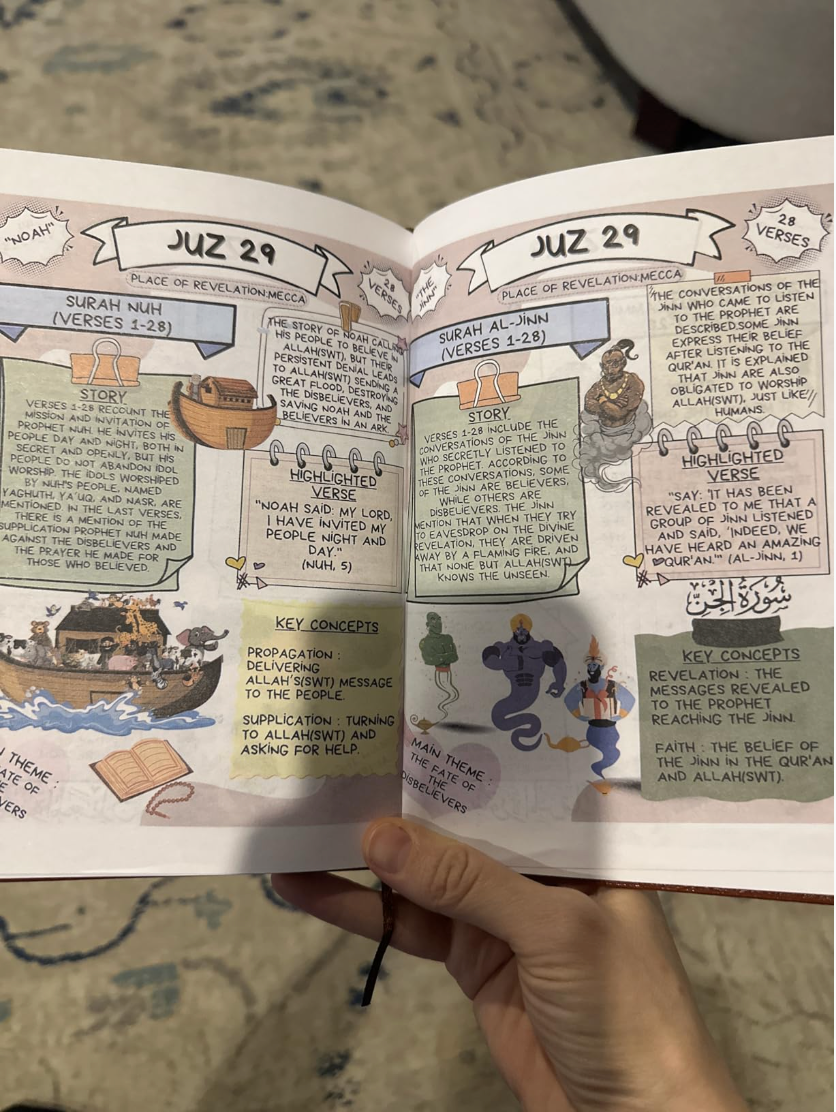 "NOAH"
JUZ 29
PLACE OF REVELATION:MECCA
28
VERSES
SURAH NUH
(VERSES 1-28)
THE STORY OF NOAH CALLING
HIS PEOPLE TO BELIEVE IN
ALLAH(SWT), BUT THEIR
PERSISTENT DENIAL LEADS
TO ALLAH(SWT) SENDING A
GREAT FLOOD, DESTROYING
THE DISBELIEVERS, AND
SAVING NOAH AND THE
BELIEVERS IN AN ARK.
STORY
VERSES 1-28 RECOUNT THE
MISSION AND INVITATION OF
PROPHET NUH. HE INVITES HIS
PEOPLE DAY AND NIGHT, BOTH IN
SECRET AND OPENLY, BUT HIS
PEOPLE DO NOT ABANDON IDOL
WORSHIP. THE IDOLS WORSHIPED
BY NUH'S PEOPLE, NAMED
YAGHUTH, YA'UQ, AND NASR, ARE
MENTIONED IN THE LAST VERSES.
THERE IS A MENTION OF THE
SUPPLICATION PROPHET NUH MADE
AGAINST THE DISBELIEVERS AND
THE PRAYER HE MADE FOR
THOSE WHO BELIEVED.
HIGHLIGHTED
VERSE
"NOAH SAID: MY LORD,
I HAVE INVITED MY
PEOPLE NIGHT AND
DAY."
(NUH, 5)
KEY CONCEPTS
PROPAGATION :
DELIVERING
ALLAH'S(SWT) MESSAGE
TO THE PEOPLE.
SUPPLICATION : TURNING
TO ALLAH(SWT) AND
ASKING FOR HELP.
THEME :
FATE OF
"THE
JINN"
JUZ 29
28
VERSES
PLACE OF REVELATION:MECCA
SURAH AL-JINN
(VERSES 1-28)
THE CONVERSATIONS OF THE
JINN WHO CAME TO LISTEN
TO THE PROPHET ARE
DESCRIBED.SOME JINN
EXPRESS THEIR BELIEF
AFTER LISTENING TO THE
QUR'AN. IT IS EXPLAINED
THAT JINN ARE ALSO
OBLIGATED TO WORSHIP
ALLAH(SWT), JUST LIKE
HUMANS.
STORY
VERSES 1-28 INCLUDE THE
CONVERSATIONS OF THE JINN
WHO SECRETLY LISTENED TO
THE PROPHET. ACCORDING TO
THESE CONVERSATIONS, SOME
OF THE JINN ARE BELIEVERS,
WHILE OTHERS ARE
DISBELIEVERS. THE JINN
MENTION THAT WHEN THEY TRY
TO EAVESDROP ON THE DIVINE
REVELATION, THEY ARE DRIVEN
AWAY BY A FLAMING FIRE, AND
THAT NONE BUT ALLAH(SWT)
KNOWS THE UNSEEN.
HIGHLIGHTED
VERSE
"SAY: 'IT HAS BEEN
REVEALED TO ME THAT A
GROUP OF JINN LISTENED
AND SAID, 'INDEED, WE
HAVE HEARD AN AMAZING
QUR'AN.'" (AL-JINN, 1)
سُورَةُ الجِنِّ
KEY CONCEPTS
REVELATION : THE
MESSAGES REVEALED
TO THE PROPHET
REACHING THE JINN.
FAITH : THE BELIEF OF
THE JINN IN THE QUR'AN
AND ALLAH(SWT).
MAIN THEME :
THE FATE OF
THE
DISBELIEVERS